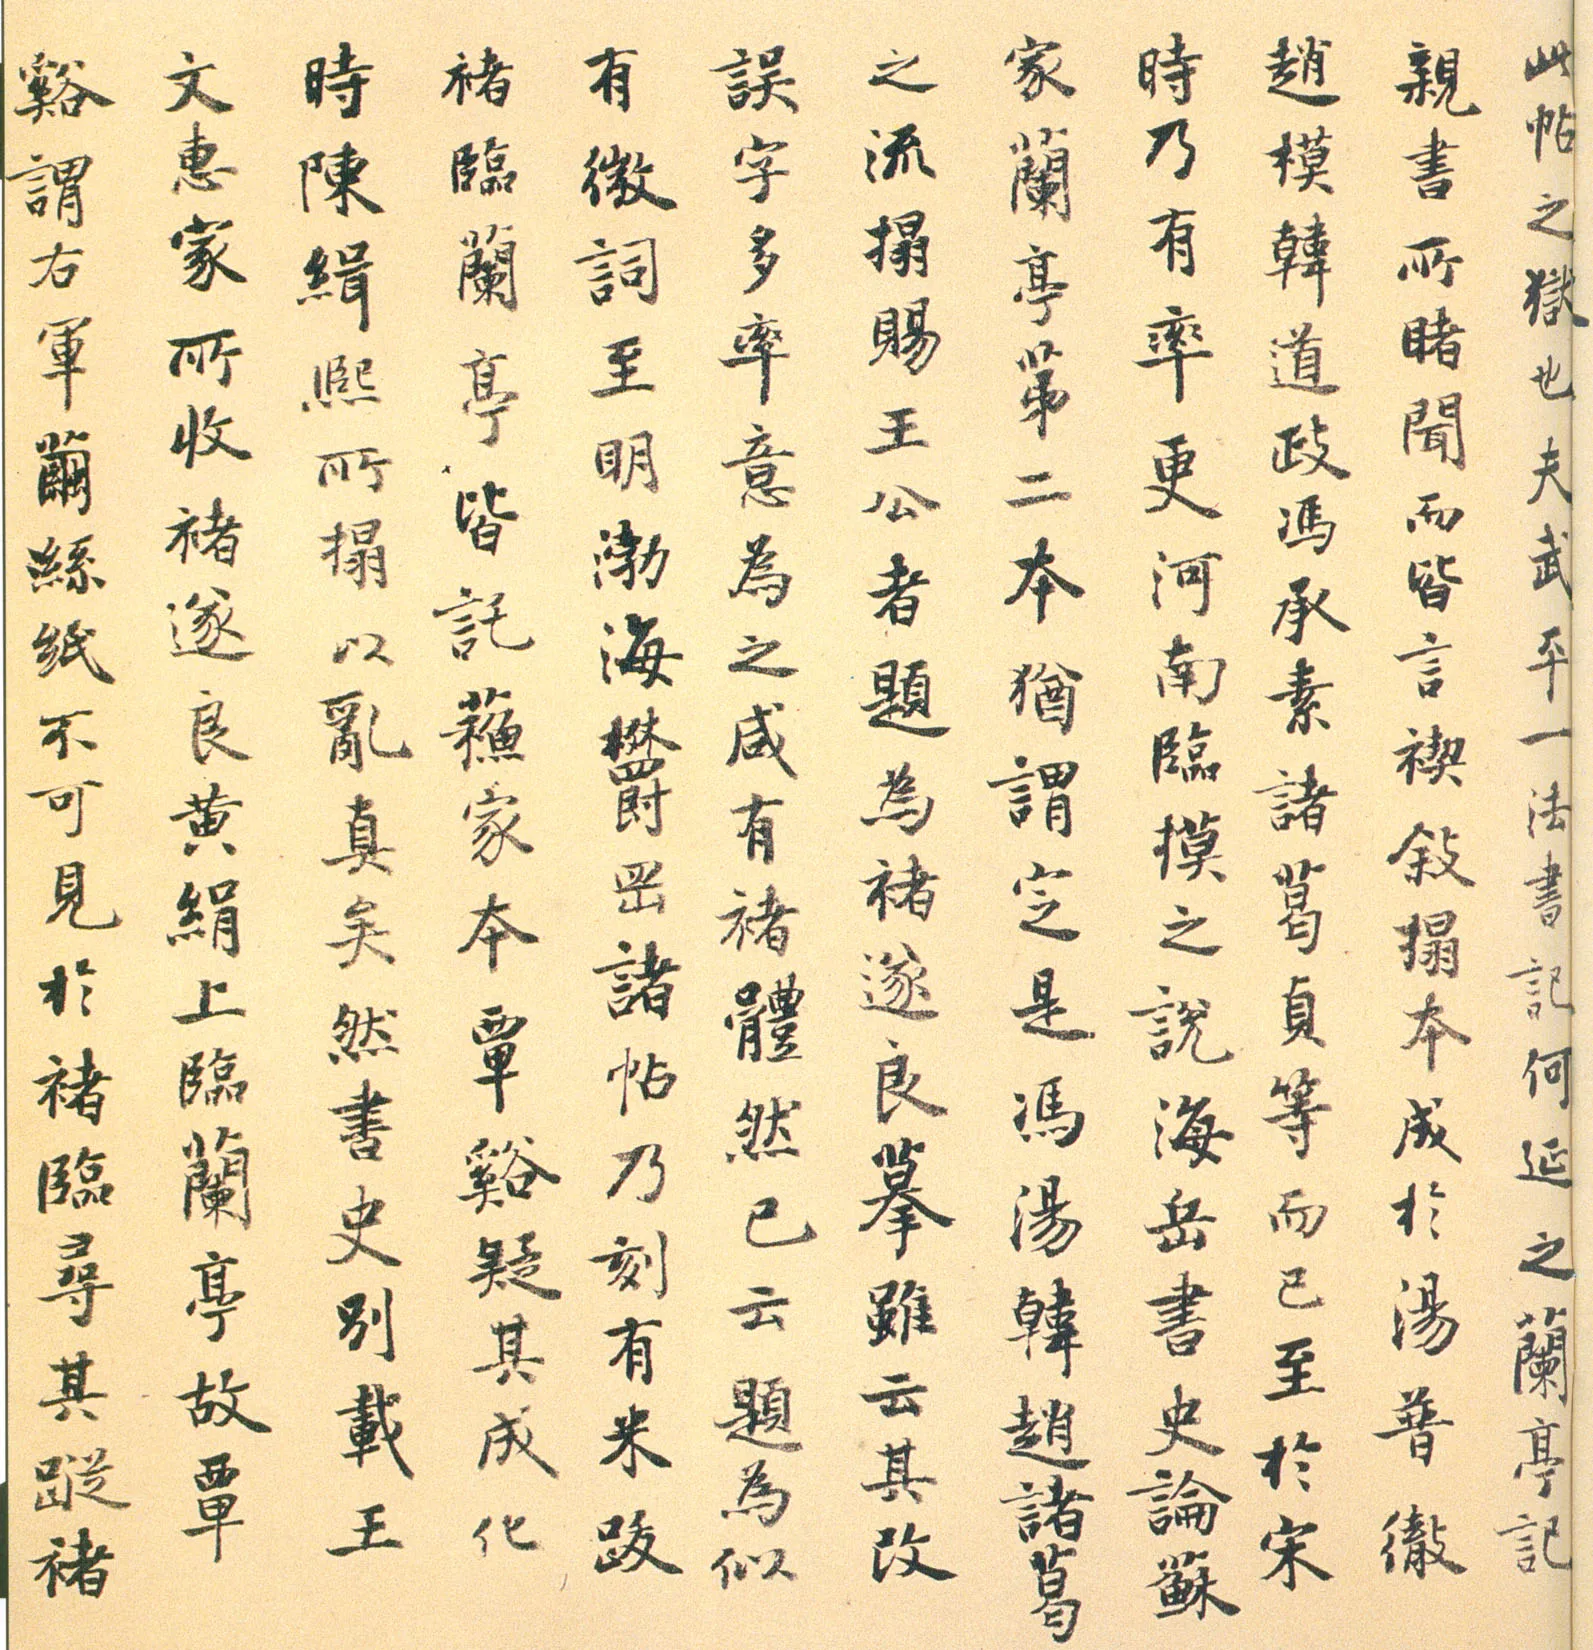 此帖之獄也夫武平一法書記何延之蘭亭記
親書所睹聞而皆言禊敍搨本成於湯普徹
趙模韓道政馮承素諸葛貞等而已至於宋
時乃有率更河南臨摸之說海岳書史論蘇
家蘭亭苐二本猶謂定是馮湯韓趙諸葛
之流搨賜王公者題為褚遂良摹雖云其改
誤字多率意為之咸有褚體然已云題為似
有微詞至明渤海欝岡諸帖乃刻有米跋
褚臨蘭亭皆託蘓家本覃谿疑其成化
時陳緝熙所搨以亂真矣然書史別載王
文惠家所收褚遂良黄絹上臨蘭亭故覃
谿謂右軍繭絲紙不可見於褚臨尋其蹤褚